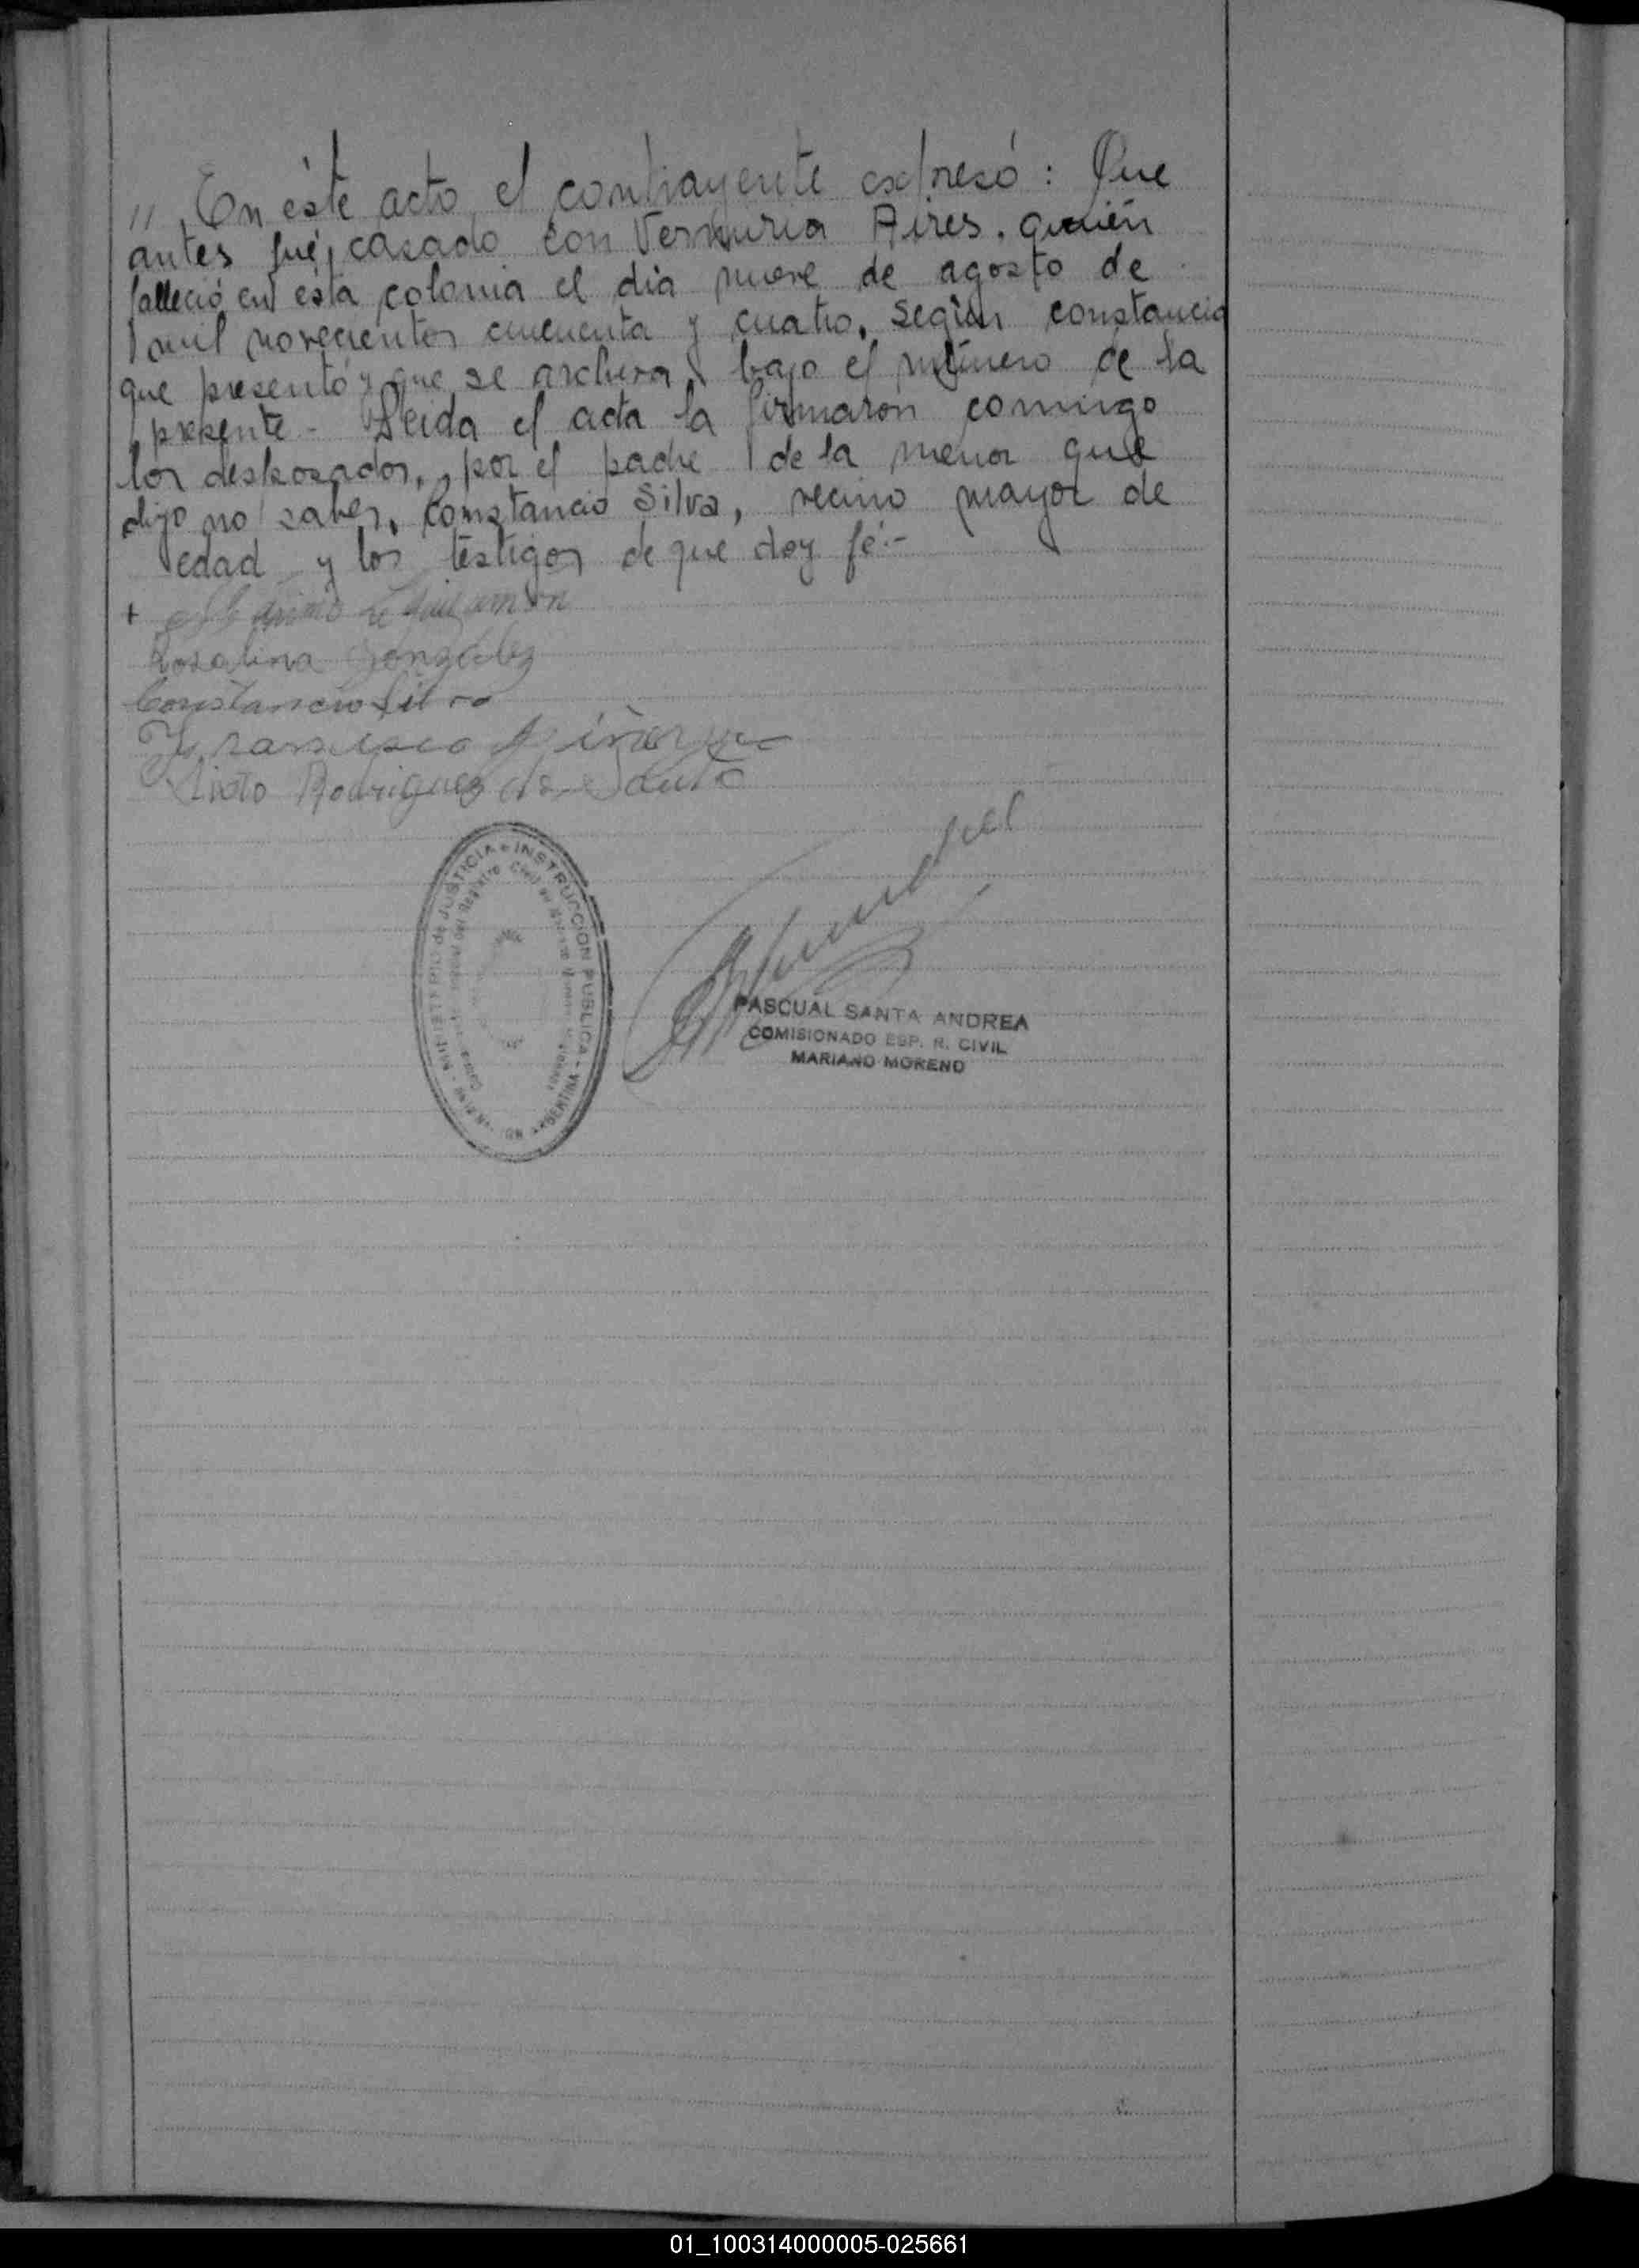 // En éste acto el contrayente expresó: Que
antes fué casado con Aires. quién
falleció en esta colonia el dia nueve de agosto de
mil novecientos cincuenta y cuatro, según constancia
que presentó y que se archiva bajo el número de la
presente - Leida el acta la firmaron conmigo
los desposados, por el padre de la menor que
dijo no saber, Constancio Silva, vecino mayor de
edad y los testigos de que doy fé.-
+
Rosalina Gonzalez
Constancio Silva
Francisco
Rodriguez dos Santo
MINISTERIO de JUSTICIA e INSTRUCCIÓN PUBLICA - ARGENTINA
Registro Civil
PASCUAL SANTA ANDREA
COMISIONADO ESP. R. CIVIL
MARIANO MORENO
01_100314000005-025661